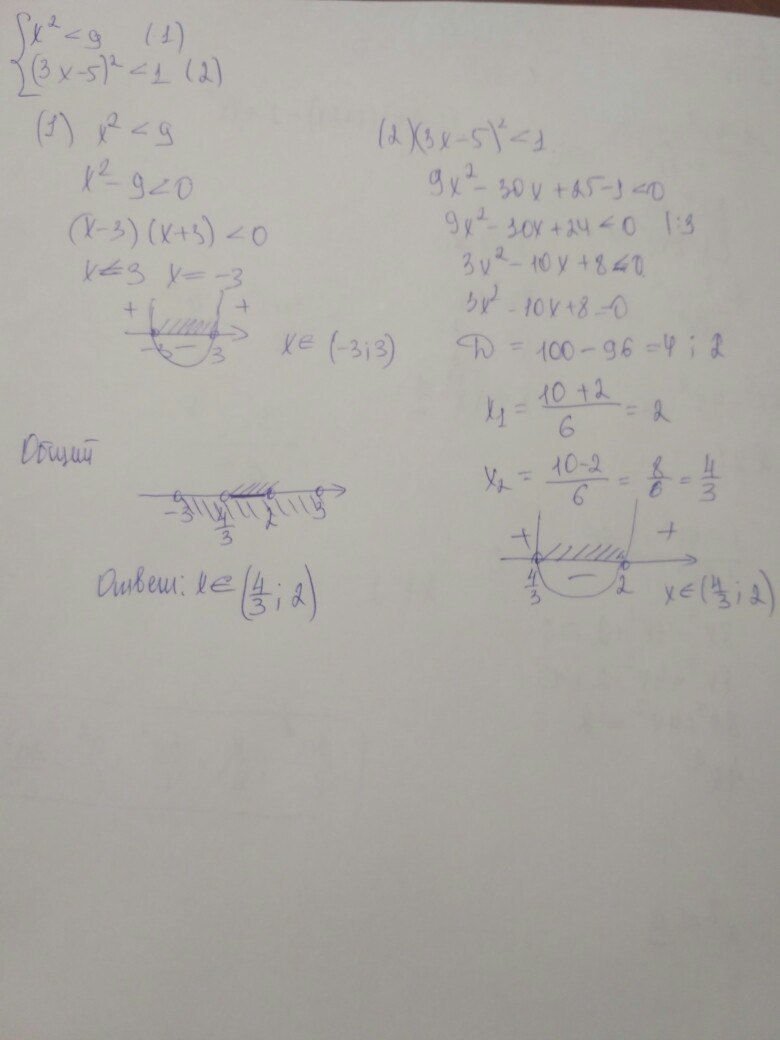 { x² < 9 (1)
(3x-5)² < 1 (2)
(1) x² < 9
x² - 9 < 0
(x-3)(x+3) < 0
x = 3 x = -3
+ +
-3 - 3
x ∈ (-3; 3)
(2) (3x-5)² < 1
9x² - 30x + 25 - 1 < 0
9x² - 30x + 24 < 0 |:3
3x² - 10x + 8 < 0
3x² - 10x + 8 = 0
D = 100 - 96 = 4 ; 2
x₁ = (10+2)/6 = 2
x₂ = (10-2)/6 = 8/6 = 4/3
+ +
4/3 - 2
x ∈ (4/3; 2)
Общий
-3 4/3 2 3
Ответ: x ∈ (4/3; 2)